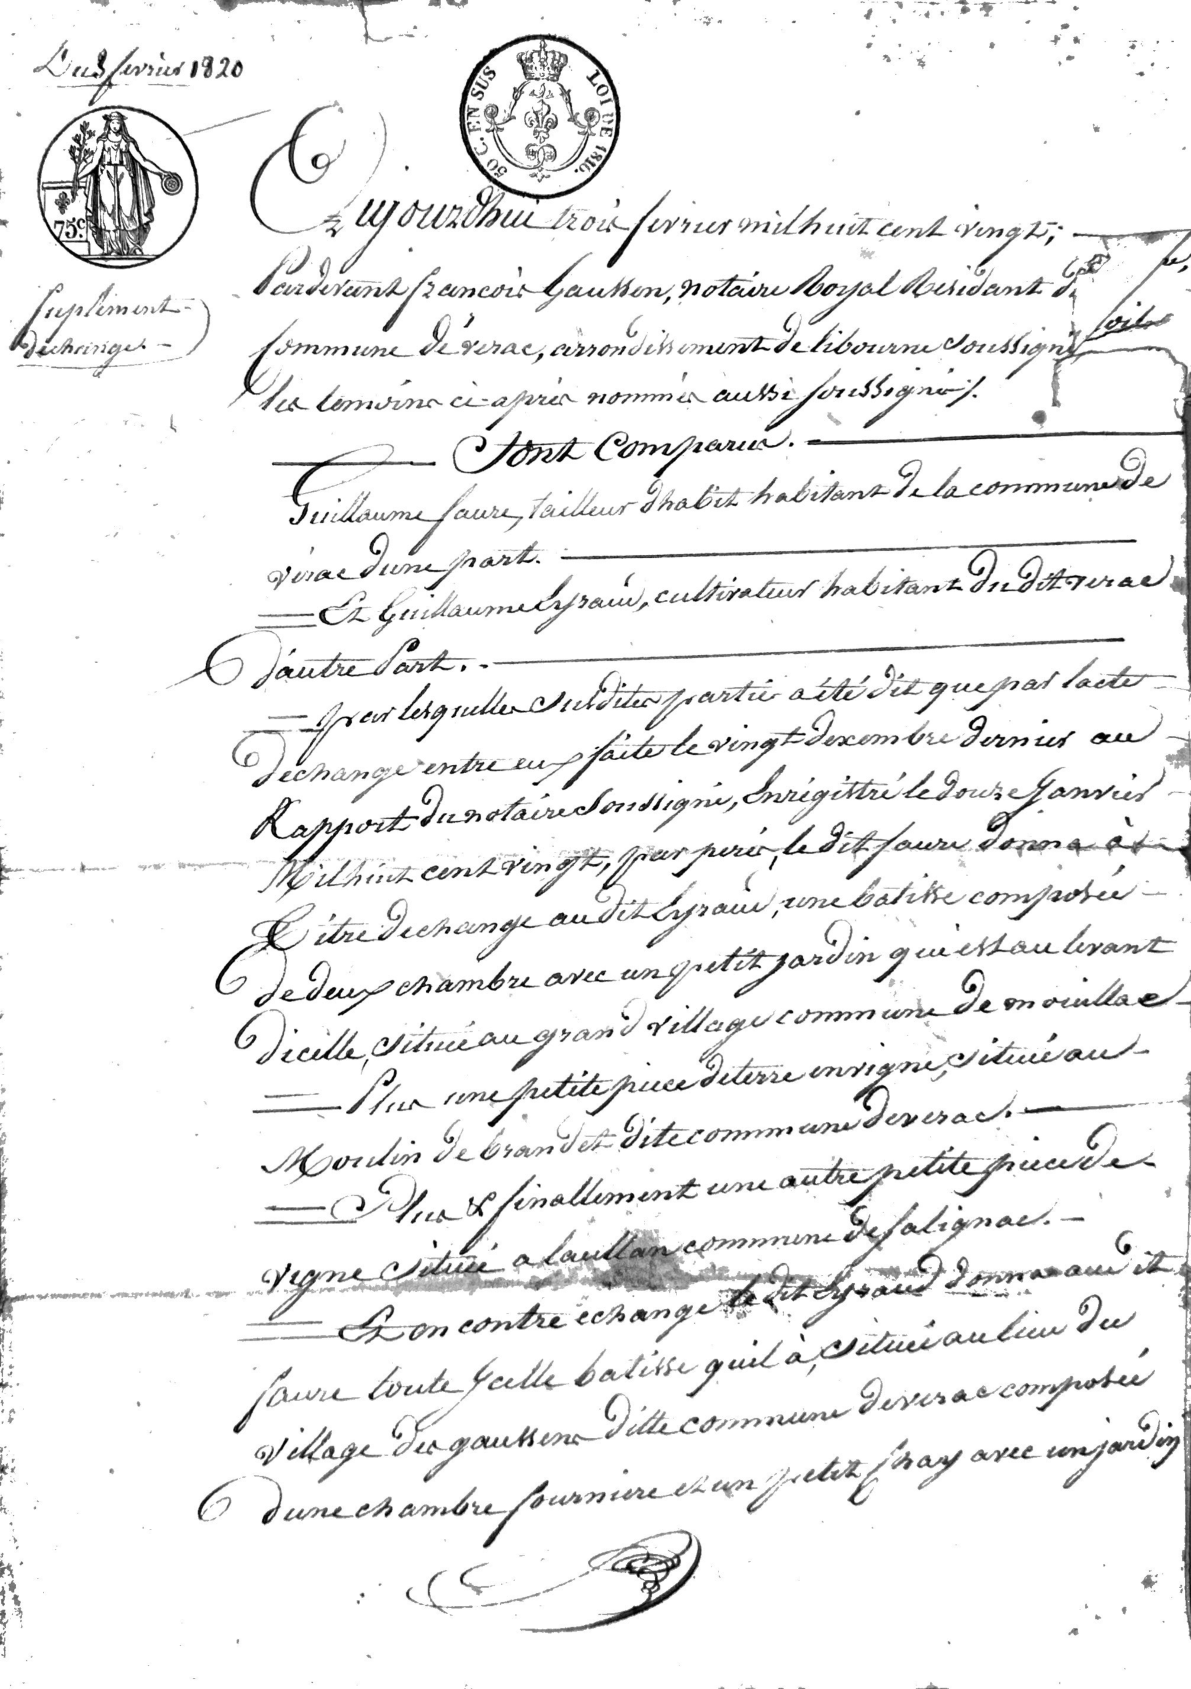 Du 3 fevrier 1820
50 C. EN SUS LOI DE 1816.
75 c.
Suplement
dechange
Aujourdhui trois fevrier mil huit cent vingt;
Pardevant francois Gaussen, notaire Royal Residant
commune de verac, arrondissement de libourne soussigné
les temoins ci-après nommés aussi soussignés.
Sont Comparus.
Guillaume faure, tailleur dhabit habitant de la commune de
vérac dune part.
Et Guillaume Lyraud, cultivateur habitant du dit verac
dautre Part.
par lesquelles susdites partie a été dit que par lacte
dechange entre eux faite le vingt dexembre dernier au
Rapport du notaire soussigné, Enrégistré le douze Janvier
Mil huit cent vingt, par periés, le dit faure donna à
titre dechange au dit Lyraud, une batisse composée
de deux chambre avec un petit jardin qui est au levant
dicelle, située au grand village commune de mouillac
Plus une petite piece de terre en vigne, située au
Moulin de brandet dite commune de verac.
Plus & finallement une autre petite piece de
vigne située a laullan commune de salignac.
Et en contre echange le dit Lyraud donna au dit
faure toute Ycelle batisse quil à, située au lieu du
village des gaussens ditte commune de verac composée
dune chambre fourniere et un petit chay avec un jardin